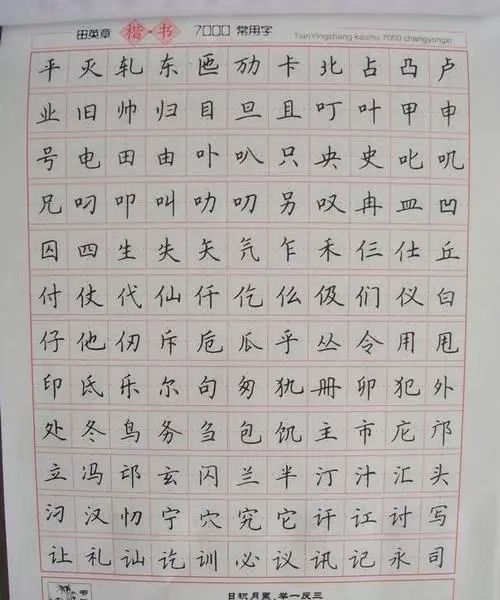 田英章 楷·书 7000 常用字
TianYingzhang kaishu 7000 changyongzi
平灭轧东匜劢卡北占凸卢
业旧帅归目旦且叮叶甲申
号电田由卟叭只央史叱叽
兄叼叩叫叻叨另叹冉皿凹
囚四生失矢氕乍禾仨仕丘
付仗代仙仟仡仫伋们仪白
仔他仞斥卮瓜乎丛令用甩
印氐乐尔句匆犰册卯犯外
处冬鸟务刍包饥主市庀邝
立冯邙玄闪兰半汀汁汇头
汈汉忉宁穴究它讦讧讨写
让礼讪讫训必议讯记永司
日积月累,举一反三